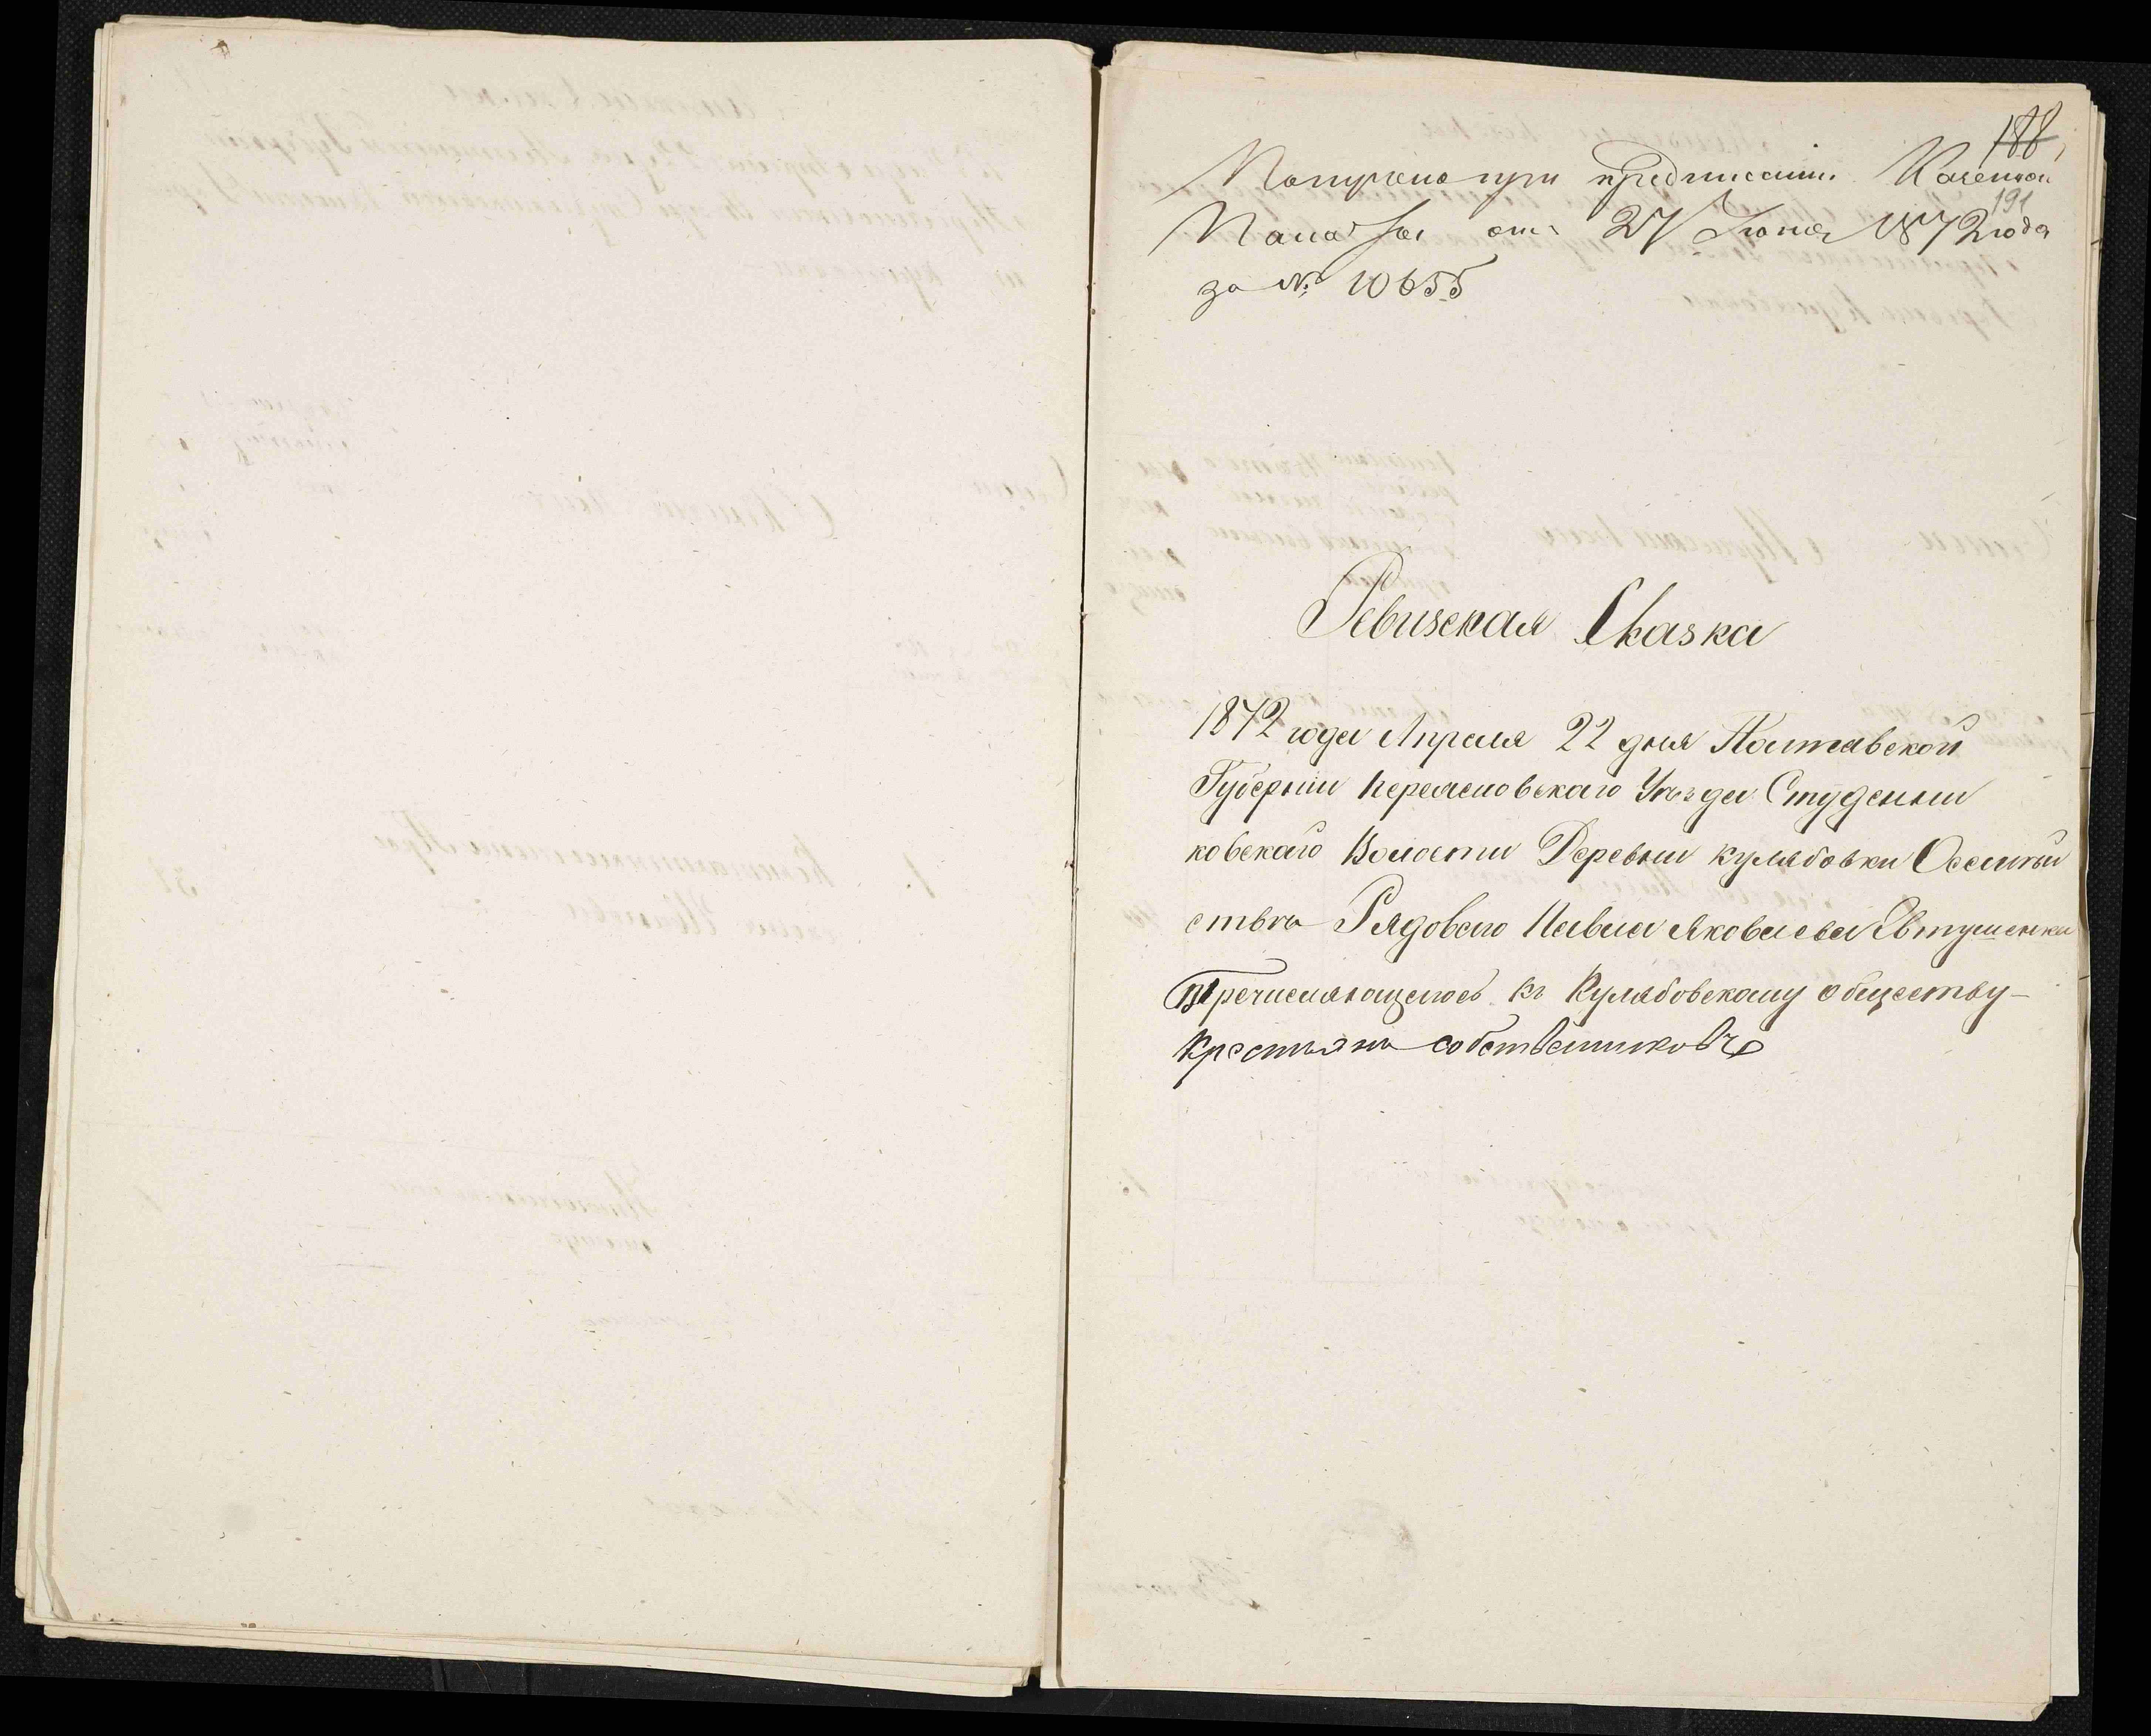 188
191
Получено при предписании Казенной
Палаты отъ 27 Іюня 1872 года
за № 10655
Ревизская Сказка
1872 года Апреля 22 дня Полтавской
Губерніи Переяславскаго Уѣзда Студенни
ковскаго Волости Деревни Кулябовки Семей
ства Рядоваго Павла Яковлева Евтушенка
Перечисляющегось къ Кулябовскому обществу
Крестьянъ собственниковъ